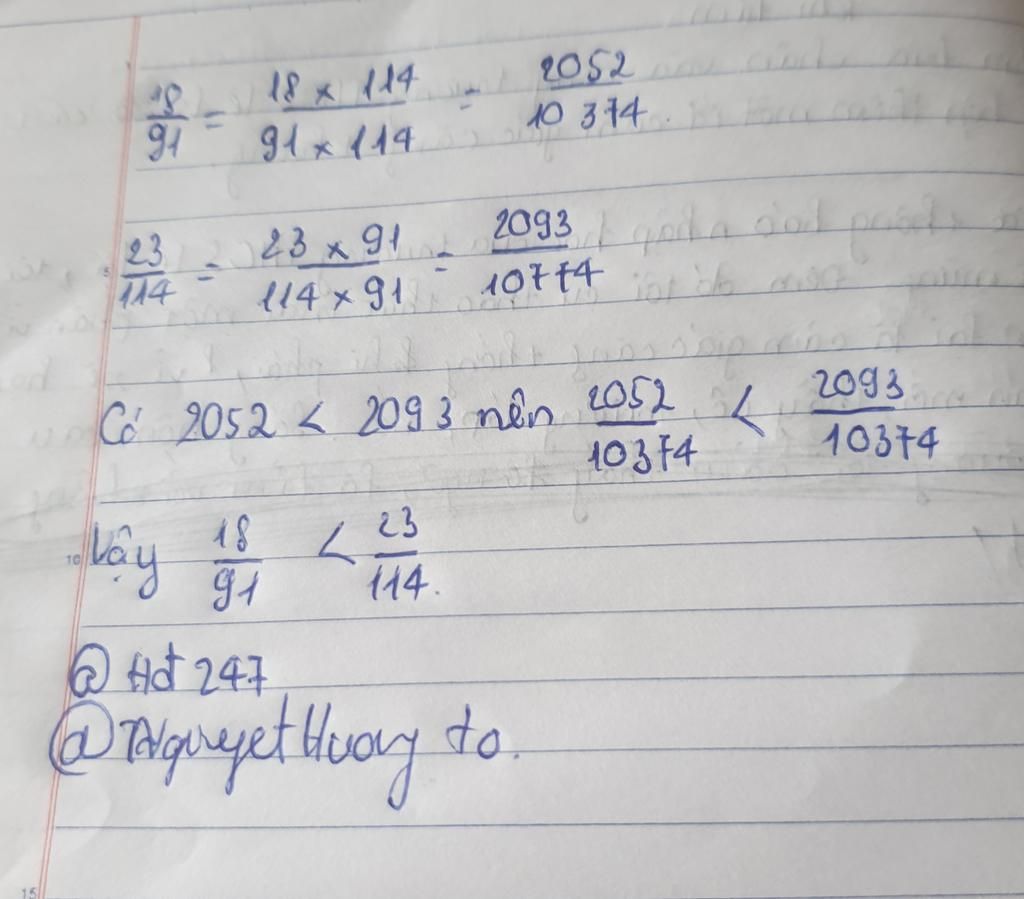 18/91 = 18 x 114/91 x 114 = 2052/10 374.
23/114 = 23 x 91/114 x 91 = 2093/10774
Có 2052 < 2093 nên 2052/10374 < 2093/10374
Vậy 18/91 < 23/114.
@ Hđ 247
10
15